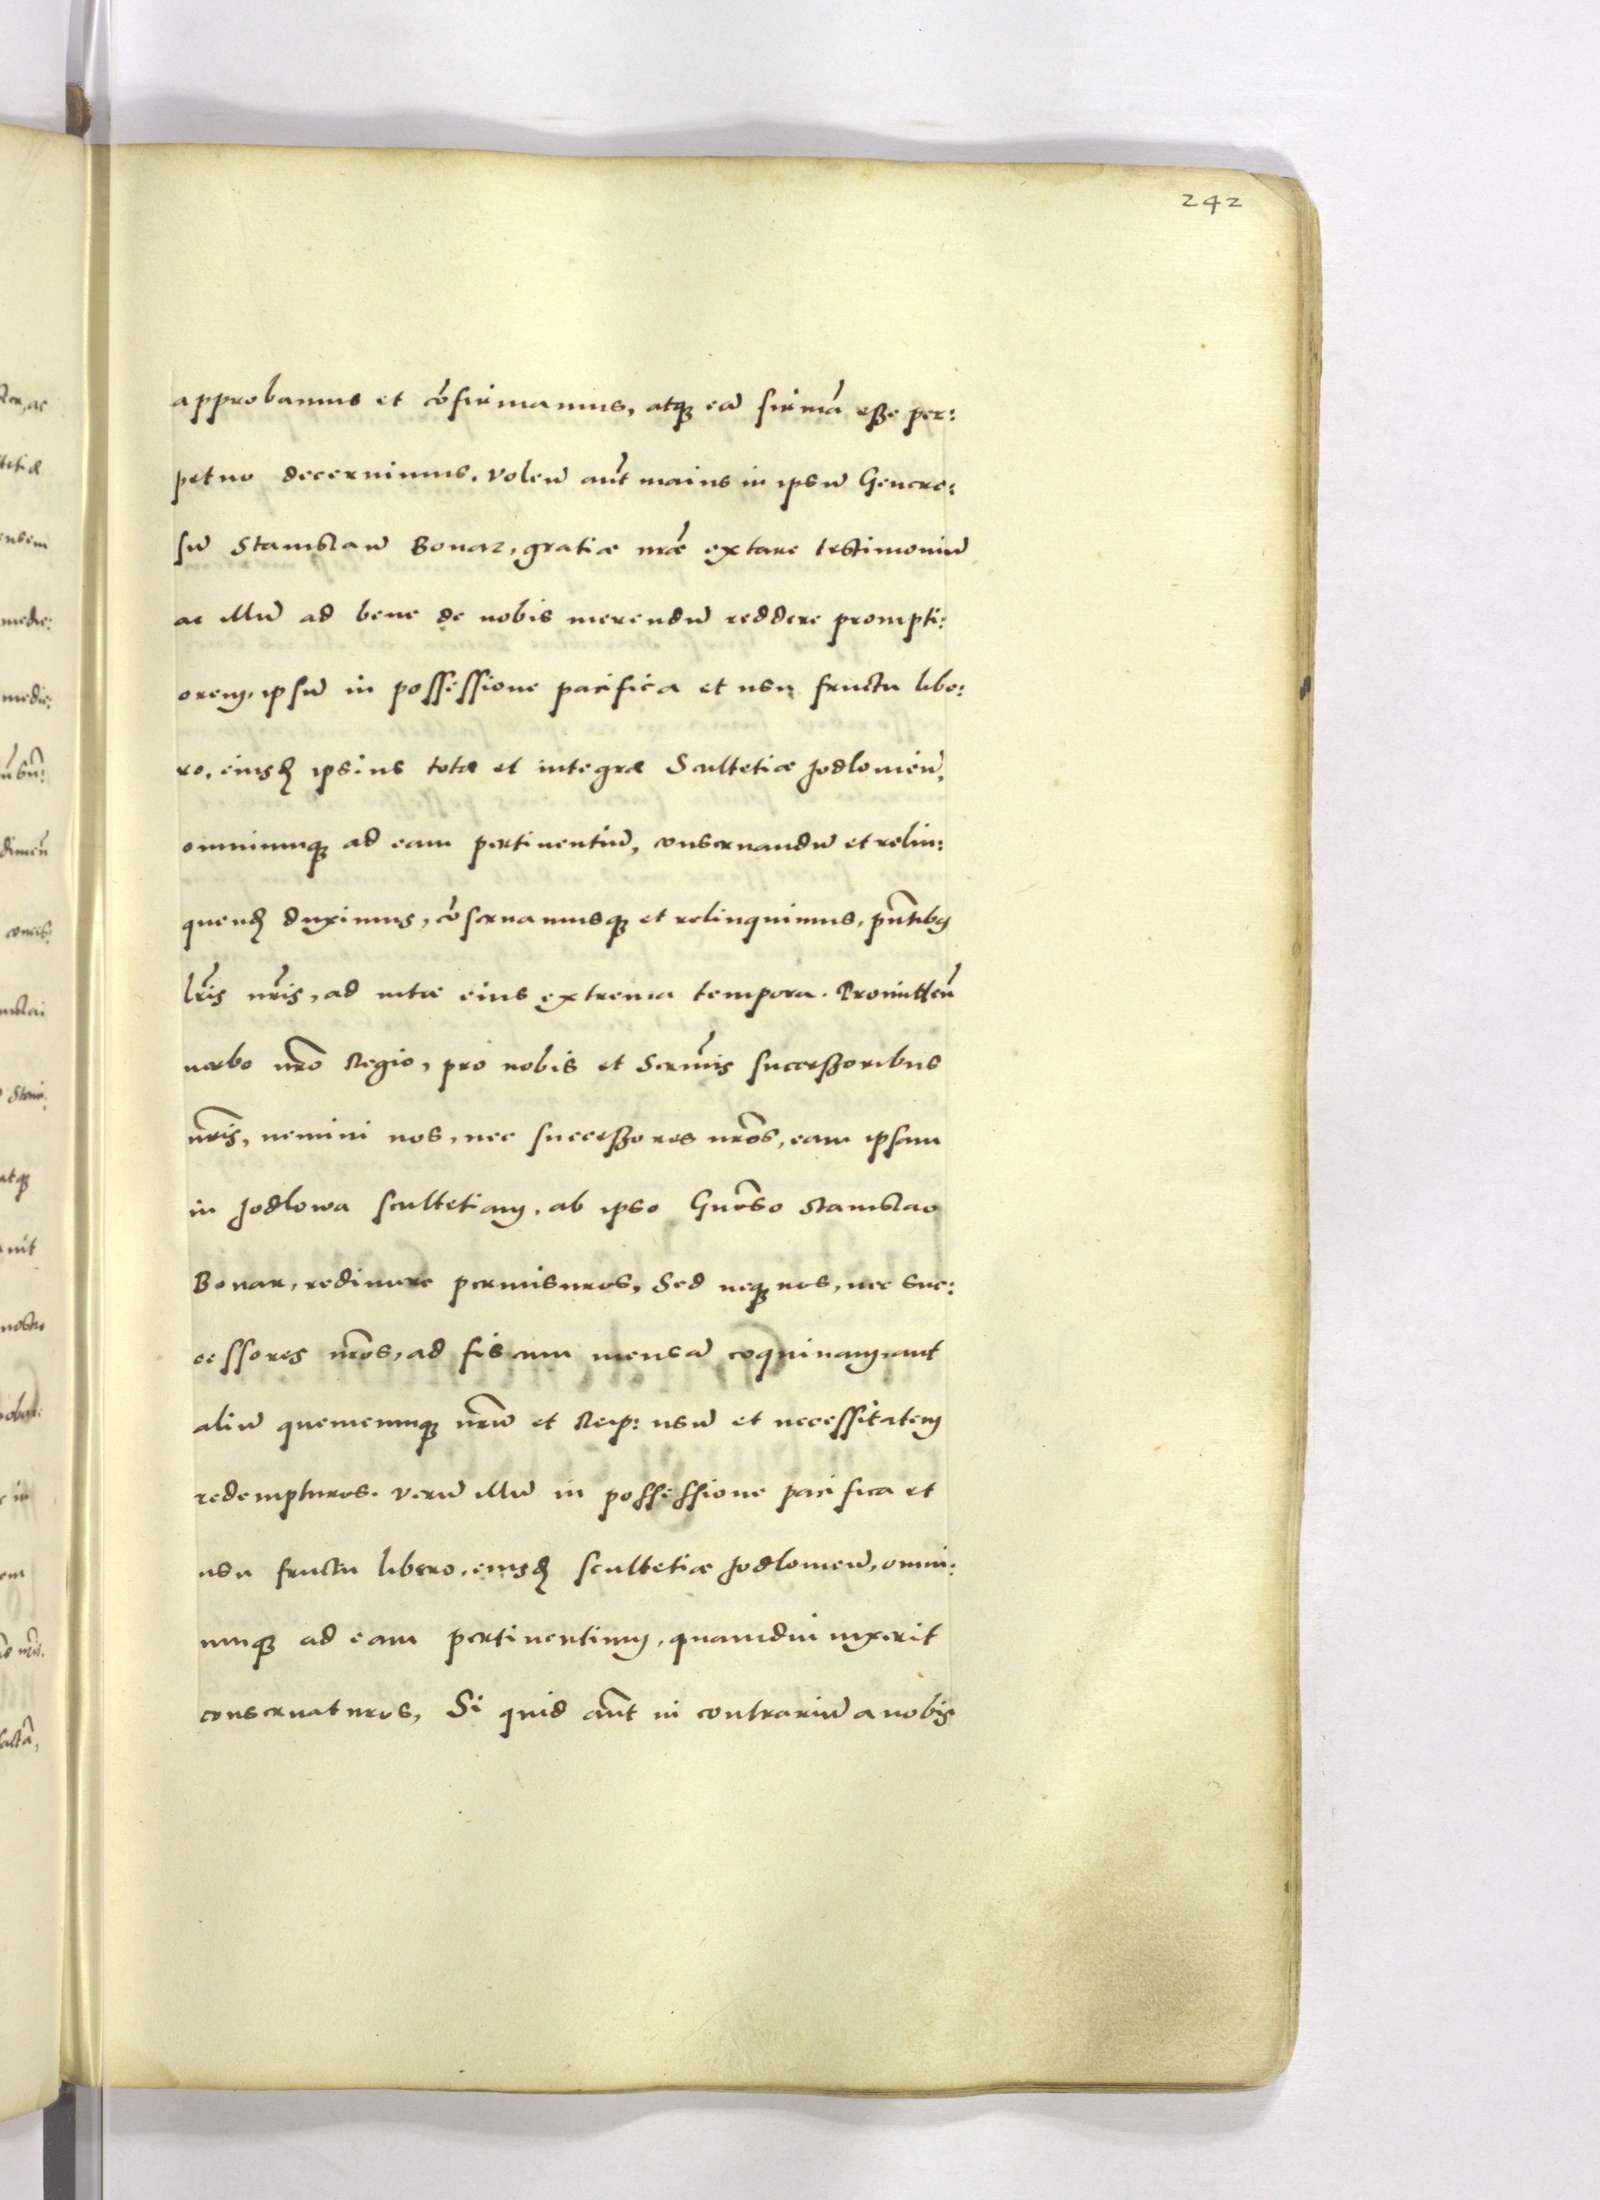 242
approbamus et cōfirmamus, atq̃ eā firmā esse per:
petuo decernimus. Volen̄ aūt maius in ipsū Genero:
sū Stanislaū Bonar, gratiæ nr̄æ extare testimoniū
ac illū ad bene de nobis merendū reddere prompti:
orem, ipsū in possessione pacifica et usu fructu libe:
ro, eiusdē ipsius totæ et integræ Scultetiæ Jodlovien̄,
omniumq̃ ad eam pertinentiū, conservandū et relin:
quendū duximus, cōservamusq̃ et relinquimus, pn̄tibus
lr̄is nr̄is, ad vitæ eius extrema tempora. Promitten̄
verbo nr̄o Regio, pro nobis et Serm̄is successoribus
nr̄is, nemini nos, nec successores nr̄os, eam ipsam
in Jodlowa scultetiam, ab ipso Gn̄rso Stanislao
Bonar, redimere permisuros, Sed neq̃ nos, nec suc:
cessores nr̄os, ad fiscum mensā coquinam, aut
aliū quemcumq̃ nr̄ū et Reip: usū et necessitatem
redempturos. Verū illū in possessione pacifica et
usu fructu libero, eiusdē scultetiæ Jodlovien̄, omni:
umq̃ ad eam pertinentium, quamdiu vixerit
conservaturos, Si quid aūt in contrariū a nobis